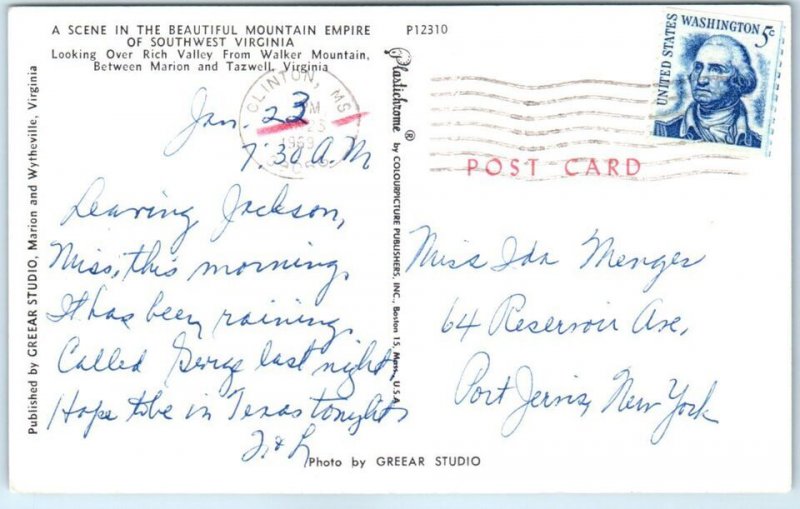 A SCENE IN THE BEAUTIFUL MOUNTAIN EMPIRE
OF SOUTHWEST VIRGINIA
Looking Over Rich Valley From Walker Mountain,
Between Marion and Tazwell, Virginia
P12310
UNITED STATES
WASHINGTON 5¢
CLINTON, MS
1969
POST CARD
Published by GREEAR STUDIO, Marion and Wytheville, Virginia
Jan. 23
7:30 A.M
Leaving Jackson,
Miss, this morning,
It has been raining,
Called George last night,
Hope to be in Texas tonight
Plastichrome ® by COLOURPICTURE PUBLISHERS, INC., Boston 15, Mass., U.S.A.
Miss Ida Menges
64 Reservoir Ave,
Port Jervis, New York
Photo by GREEAR STUDIO